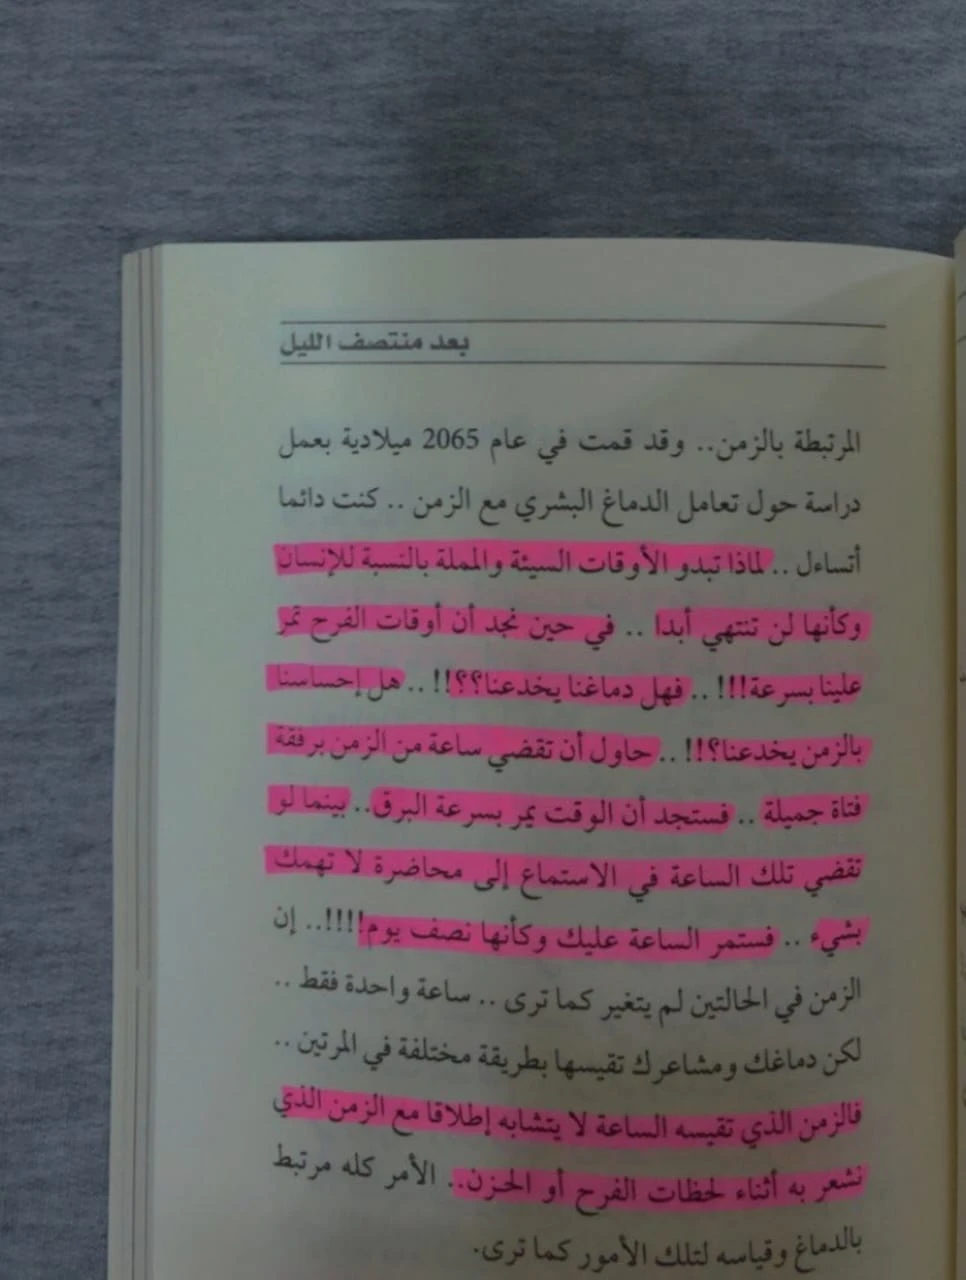 بعد منتصف الليل
المرتبطة بالزمن.. وقد قمت في عام 2065 ميلادية بعمل
دراسة حول تعامل الدماغ البشري مع الزمن .. كنت دائما
أتساءل .. لماذا تبدو الأوقات السيئة والمملة بالنسبة للإنسان
وكأنها لن تنتهي أبدا .. في حين نجد أن أوقات الفرح تمر
علينا بسرعة!!! .. فهل دماغنا يخدعنا؟؟!! .. هل إحساسنا
بالزمن يخدعنا؟!! .. حاول أن تقضي ساعة من الزمن برفقة
فتاة جميلة .. فستجد أن الوقت يمر بسرعة البرق.. بينما لو
تقضي تلك الساعة في الاستماع إلى محاضرة لا تهمك
بشيء .. فستمر الساعة عليك وكأنها نصف يوم!!!!.. إن
الزمن في الحالتين لم يتغير كما ترى .. ساعة واحدة فقط ..
لكن دماغك ومشاعرك تقيسها بطريقة مختلفة في المرتين ..
فالزمن الذي تقيسه الساعة لا يتشابه إطلاقا مع الزمن الذي
نشعر به أثناء لحظات الفرح أو الحزن.. الأمر كله مرتبط
بالدماغ وقياسه لتلك الأمور كما ترى.